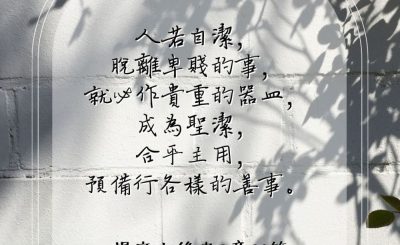 人若自潔，
脫離卑賤的事，
就必作貴重的器皿，
成為聖潔，
合乎主用，
預備行各樣的善事。